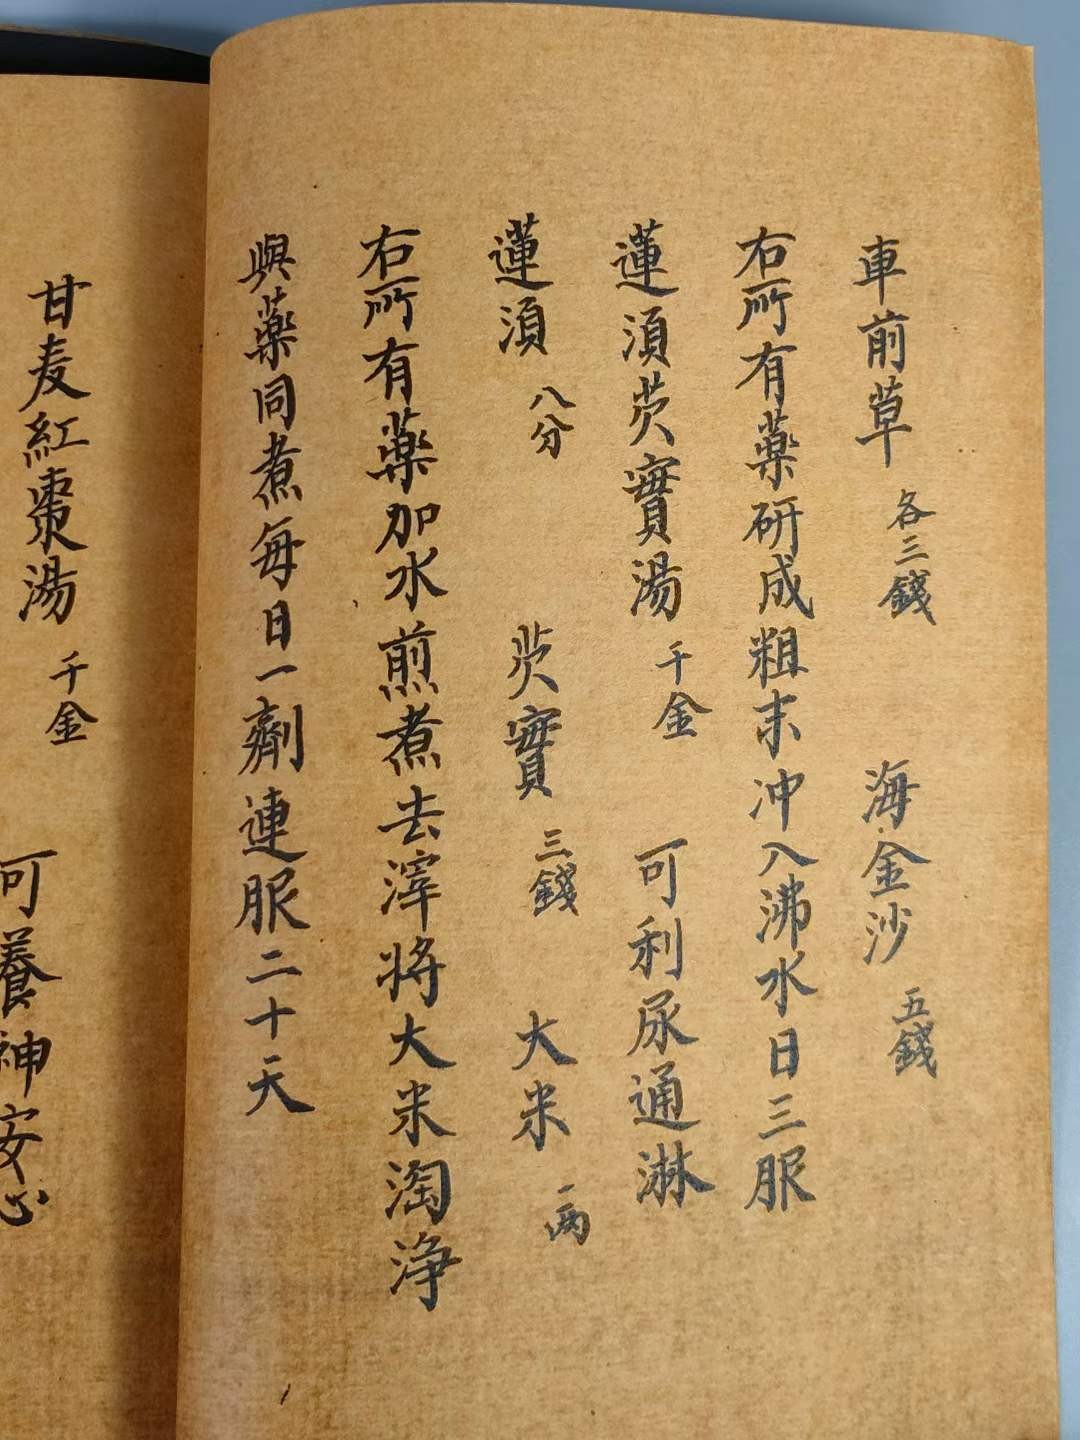 車前草 各三錢 海金沙 五錢
右所有藥研成粗末冲入沸水日三服
蓮須芡實湯 千金 可利尿通淋
蓮須 八分 芡實 三錢 大米 一两
右所有藥加水煎煮去滓將大米淘浄
與藥同煮每日一劑連服二十天
甘麦紅棗湯 千金 可養神安心